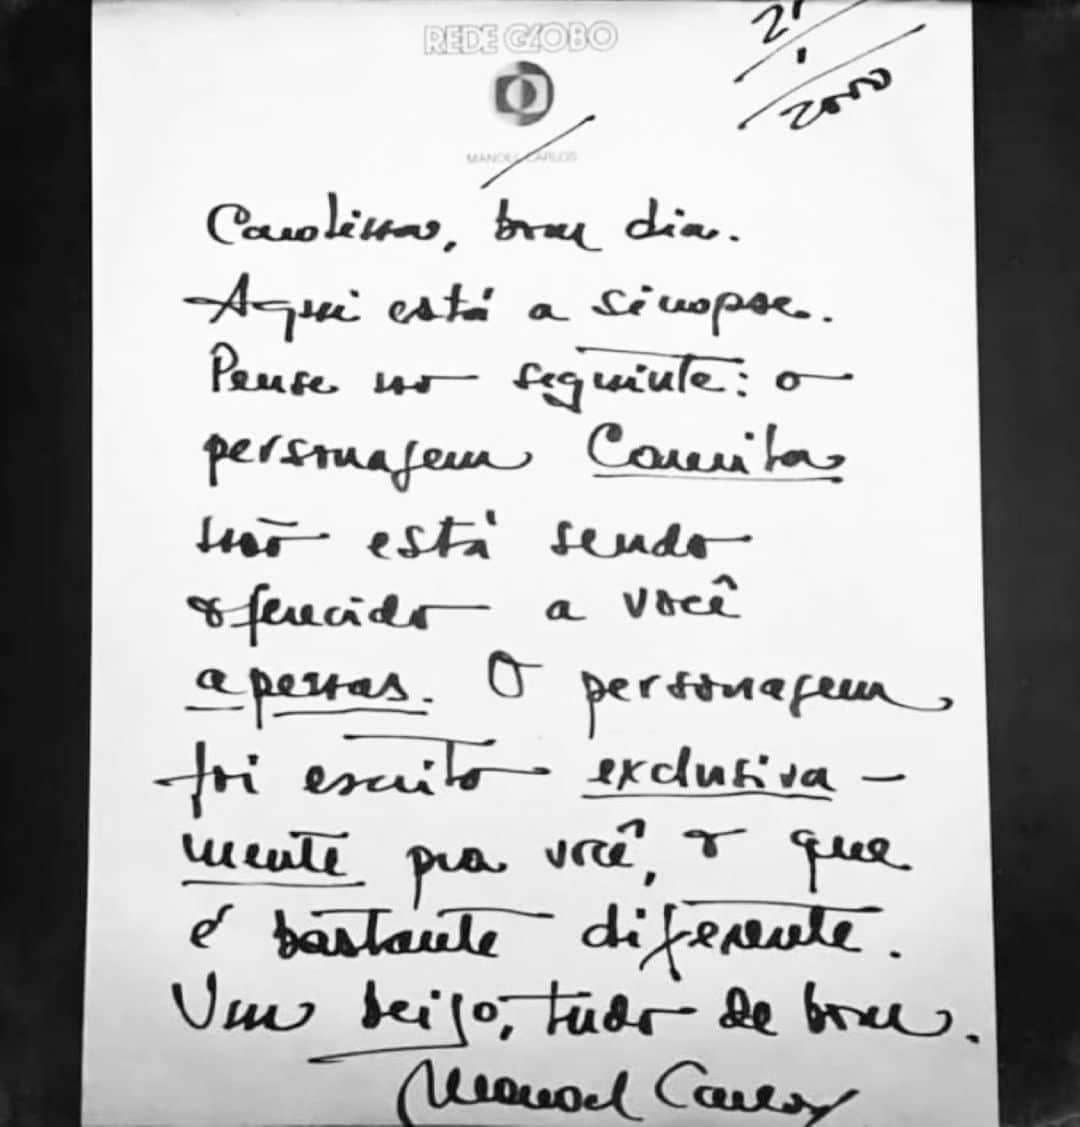 REDE GLOBO
2000
MANOEL CARLOS
Carolina, bom dia.
Aqui está a sinopse.
Pense no seguinte: o
personagem Camila
não está sendo
oferecido a você
apenas. O personagem
foi escrito exclusiva-
mente pra você, o que
é bastante diferente.
Um beijo, tudo de bom.
Manoel Carlos